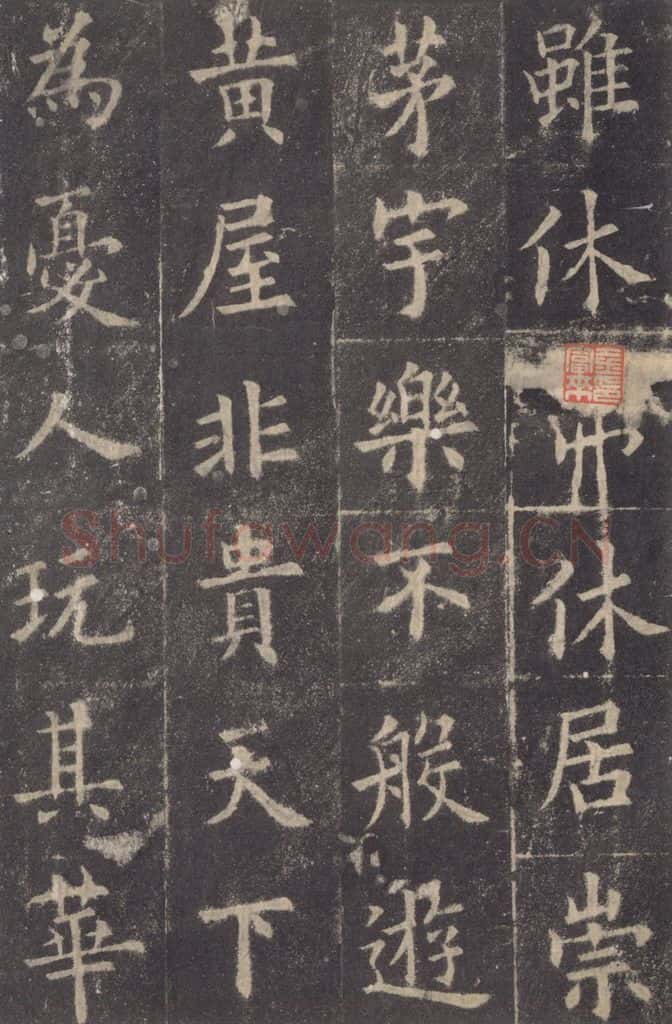 雖休休居崇
茅宇樂不般遊
黄屋非貴天下
為憂人玩其華
Shufawang.CN